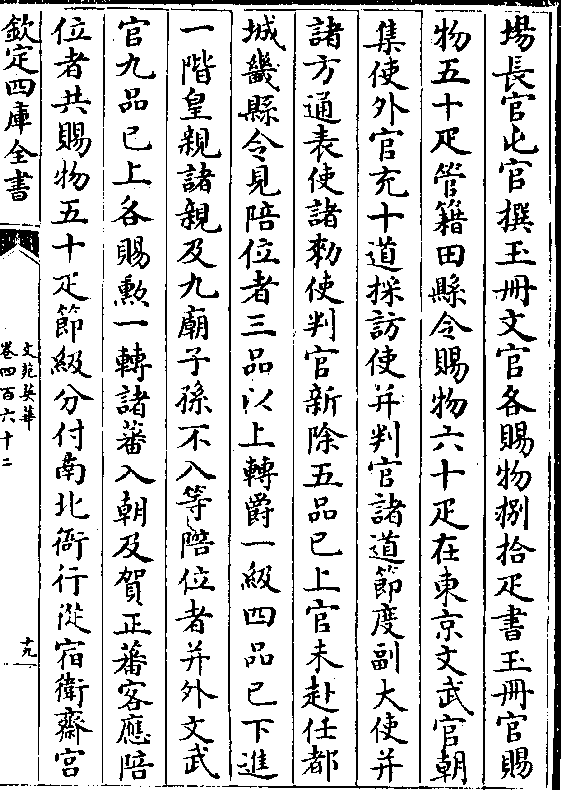 場長官屯官撰玉冊文官各賜物捌拾疋書玉冊官賜
物五十疋管籍田縣令賜物六十疋在東京文武官朝
集使外官充十道採訪使并判官諸道節度副大使并
諸方通表使諸勅使判官新除五品已上官未赴任都
城畿縣令見陪位者三品以上轉爵一級四品已下進
一階皇親諸親及九廟子孫不入等陪位者并外文武
官九品已上各賜勲一轉諸蕃入朝及賀正蕃客應陪
位者共賜物五十疋節級分付南北衙行從宿衛齋宫
欽定四庫全書
文苑英華
卷四百六十二
十九